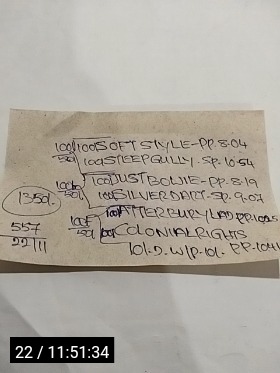 100 SOFT STYLE-PP.8.04
100 STEEPGULLY-SP.10.54
100 JUST BOWIE-PP.8.19
100 SILVERDART-SP.9.07
100 ATTERBURYLAD PP.10.25
100 COLONIALRIGHTS
101.2.W/P.101. PP.10.41
1350/.
557
22/11
22 / 11:51:34